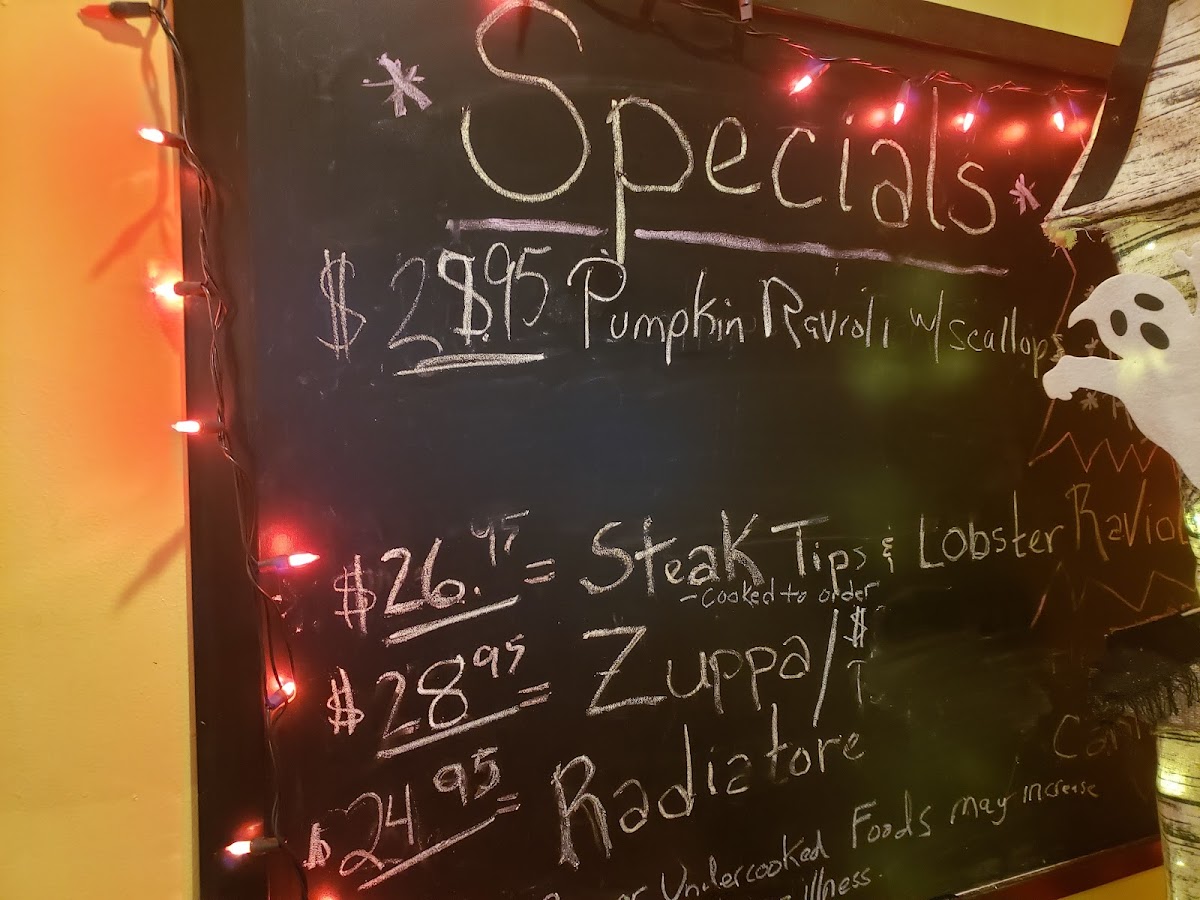 * Specials *
$28.95 Pumpkin Ravioli w/ scallops
$26.95 = Steak Tips & Lobster Ravio
-cooked to order
$28.95 = Zuppa/$
$24.95 = Radiatore
or Undercooked Foods may increase
illness.